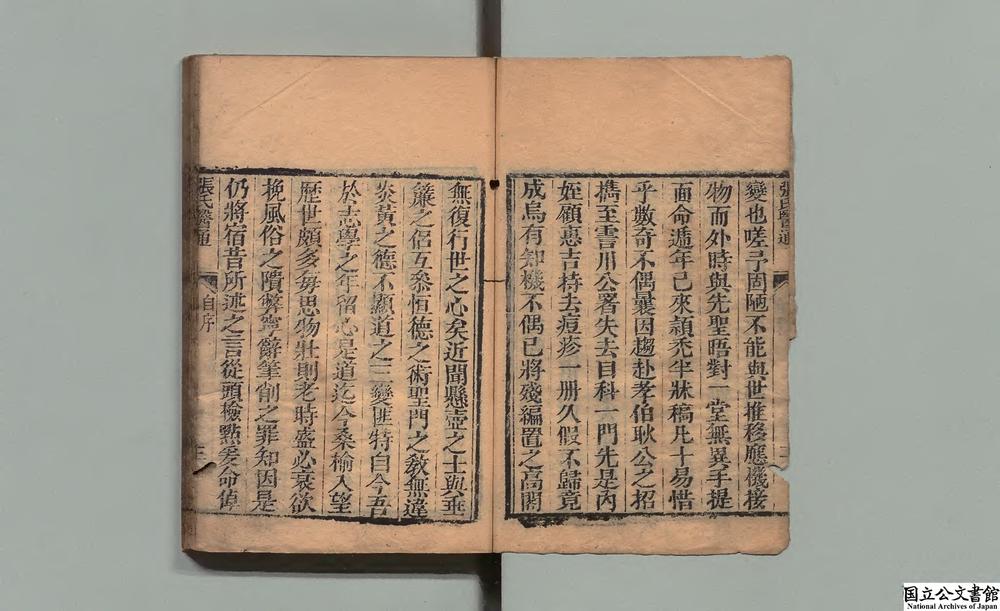 張氏醫通
變也嗟予固陋不能與世推移應機接
物而外時與先聖晤對一堂無異手提
面命遞年已來頴禿半牀稿凡十易惜
乎數奇不偶曩因趨赴孝伯耿公之招
攜至霅川公署失去目科一門先是內
姪顧惠吉持去痘疹一册久假不歸竟
成烏有知機不偶已將殘編置之高閣
無復行世之心矣近聞懸壺之士與垂
簾之侶互參恒德之術聖門之教無違
炎黃之德不顯道之三變匪特自今吾
於志學之年留心是道迄今桑榆入望
歷世頗多每思物壯則老時盛必衰欲
挽風俗之隤弊寧辭筆削之罪知因是
仍將宿昔所述之言從頭檢點爰命倬
張氏醫通
自序
三
国立公文書館
National Archives of Japan